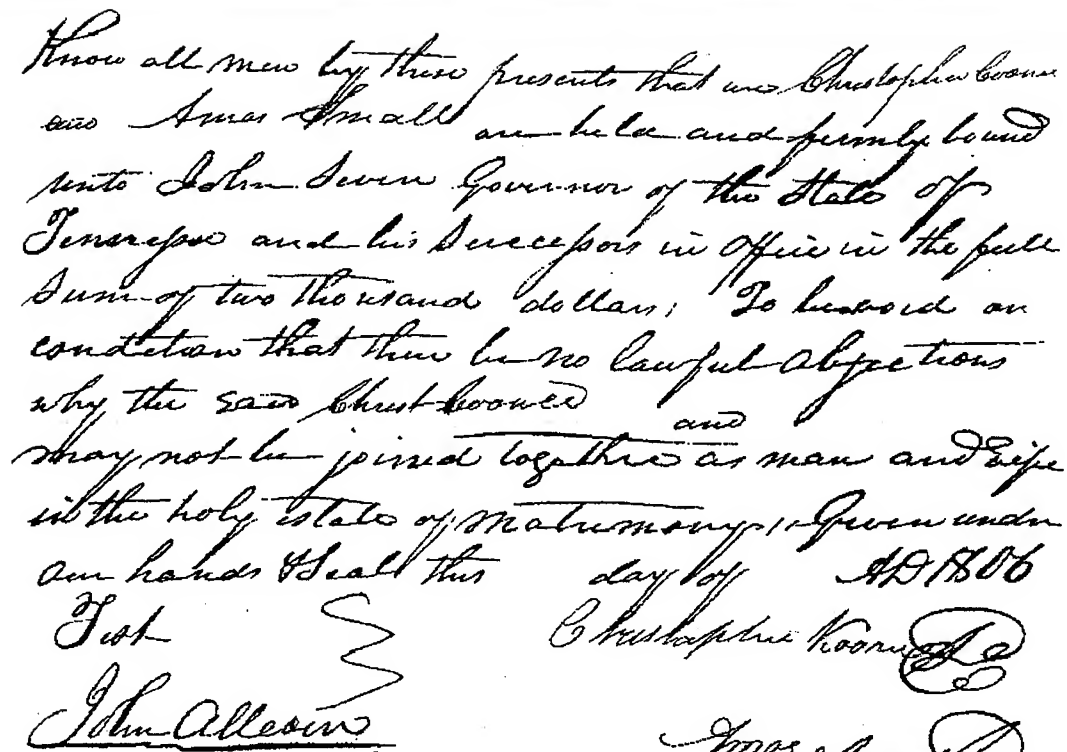 Know all men by these presents that we Christopher Coone
and Amas Small are held and firmly bound
unto John Sevier Governor of the State of
Tennessee and his Successors in Office in the full
Sum of two thousand dollars; To be void on
condition that there be no lawful objections
why the said Christ Cooned and
may not be joined together as man and wife
in the holy estate of matrimony, Given under
our hands & Seal this day of AD 1806
Test Christopher Koone
John Alleson
Amas